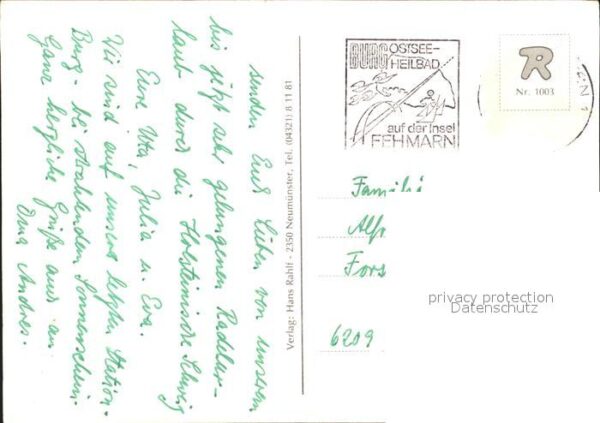 senden Euch Lieben von unserem
bis jetzt sehr gelungenen Radelur-
laub durch die Holsteinische Schweiz
Eure Uta, Julia u. Eva.
Wir sind auf unserer letzten Station -
Burg - bei strahlendem Sonnenschein.
Ganz herzliche Grüße auch an
Oma Andres.
Verlag: Hans Rahlf - 2350 Neumünster, Tel. (04321) 8 11 81
BURG OSTSEE-
HEILBAD
auf der Insel
FEHMARN
R
Nr. 1003
Familie
Alf
Fors
6209
privacy protection
Datenschutz